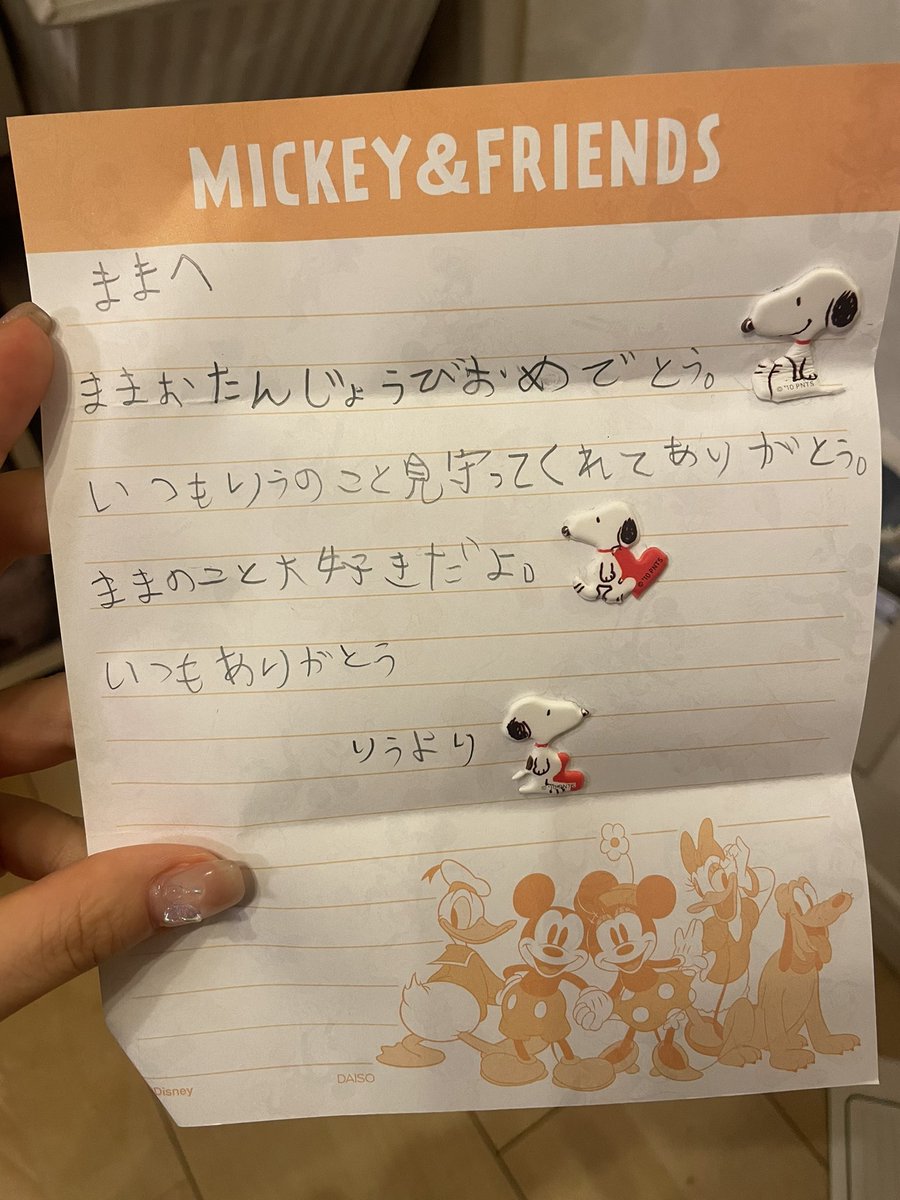 MICKEY&FRIENDS
ままへ
ままおたんじょうびおめでとう。
©'10 PNTS
いつもりうのこと見守ってくれてありがとう。
ままのこと大好きだよ。
©'10 PNTS
いつもありがとう
りうより
©'10 PNTS
Disney
DAISO